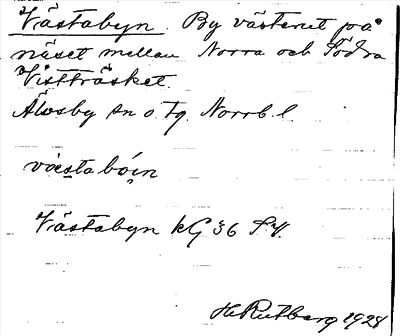 Västabyn. By västerut på
näset mellan Norra och Södra
Vistträsket.
Älvsby sn o. tg. Norrb. l.
vässtabóin
Västabyn kG 36
H. Rutberg 1928